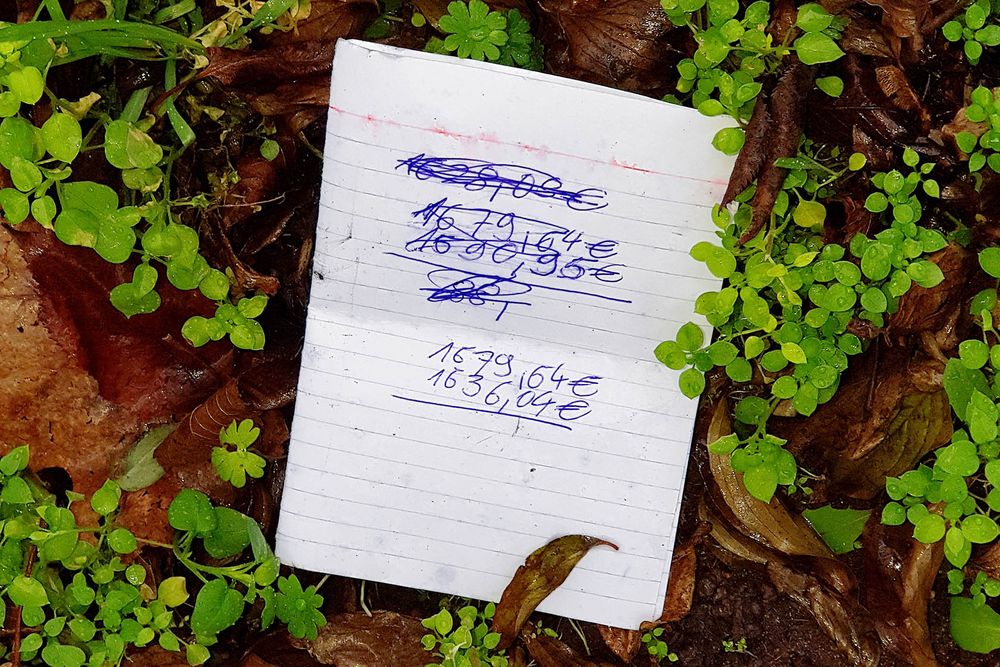 1679,64€
1690,95€
1679,64€
1636,04€